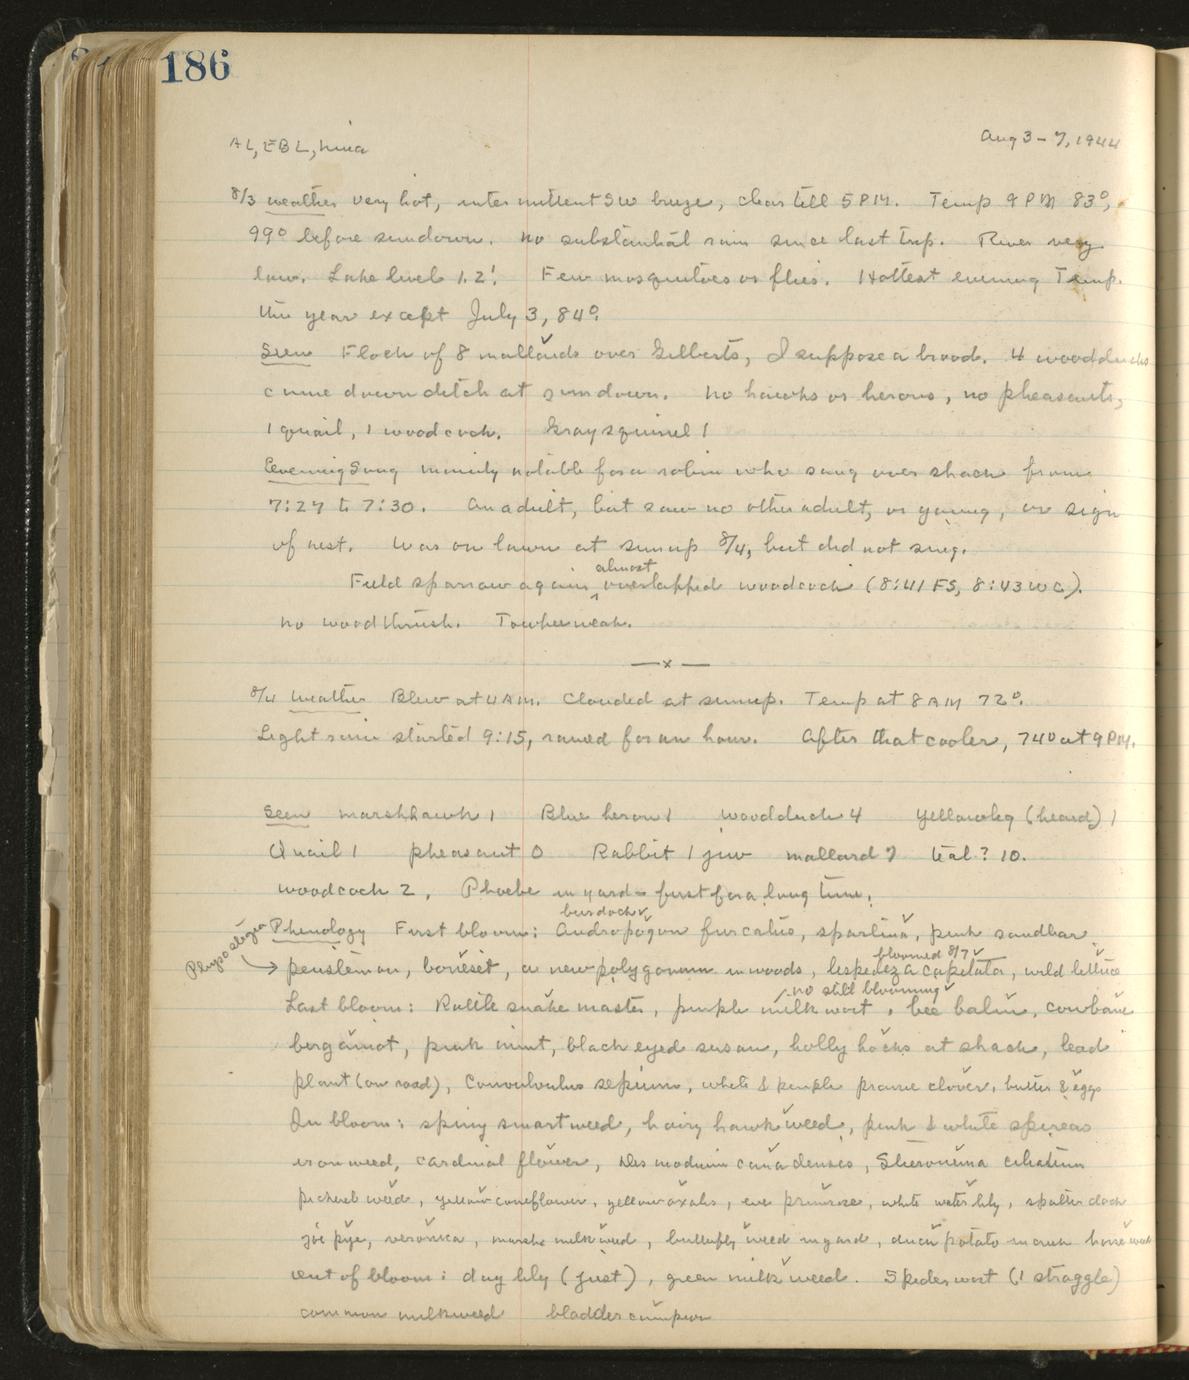 186
AL, EBL, Nina
Aug 3-7, 1944
8/3 Weather very hot, intermittent SW breeze, clear till 5 PM. Temp 9 PM 83°,
99° before sundown. No substantial rain since last trip. River very
low. Lake level 1.2! Few mosquitoes or flies. Hottest evening Temp.
this year except July 3, 84°.
Seen Flock of 8 mallards over Gilberts, I suppose a brood. 4 woodducks
came down ditch at sundown. No hawks or herons, no pheasants,
1 quail, 1 woodcock. Gray squirrel 1
Evening Song mainly notable for a robin who sang over shack from
7:27 to 7:30. An adult, but saw no other adult, or young, or sign
of nest. Was on lawn at sunup 8/4, but did not sing.
almost
Field sparrow again overlapped woodcock (8:41 FS, 8:43 WC).
No wood thrush. Towhee weak.
—x—
8/4 Weather Blew at 4 AM. Clouded at sunup. Temp at 8 AM 72°.
Light rain started 9:15, rained for an hour. After that cooler, 74° at 9 PM.
Seen marshhawk 1 Blue heron 1 woodduck 4 Yellowleg (heard) 1
Quail 1 pheasant 0 Rabbit 1 juv mallard 7 teal? 10.
woodcock 2. Phoebe in yard - first for a long time.
burdock
Phenology First bloom: Andropogon furcatus, spartina, pink sandbar
Physostegia
bloomed 8/7
penstemon, boneset, a new polygonum in woods, lespedeza capitata, wild lettuce
no still blooming
Last bloom: Rattle snake master, purple milkwort, bee balm, cowbane
bergamot, pink mint, black eyed susan, holly hocks at shack, lead
plant (on road), Convolvulus sepium, white & purple prairie clover, butter & eggs
In bloom: spiny smartweed, hairy hawkweed, pink & white spireas
ironweed, cardinal flower, Desmodium canadenses, Steironema ciliatum
pickerel weed, yellow coneflower, yellow oxalis, eve primrose, white water lily, spatter dock
joe pye, veronica, marsh milkweed, butterfly weed in yard, duck potato in creek horseweed
Out of bloom: day lily (just), green milkweed. Spiderwort (1 straggle)
common milkweed bladder campion